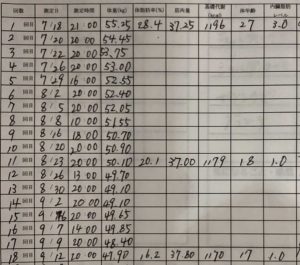 回数 測定日 測定時間 体重(kg) 体脂肪率(%) 筋肉量 基礎代謝(kcal) 体年齢 内臓脂肪レベル
1 回目 7/18 21:00 55.25 28.4 37.25 1196 27 3.0
2 回目 7/20 20:00 54.45
3 回目 7/22 20:00 53.75
4 回目 7/26 20:00 53.00
5 回目 7/29 16:00 52.55
6 回目 8/2 20:00 52.40
7 回目 8/5 20:00 52.05
8 回目 8/8 10:00 51.55
9 回目 8/16 18:00 50.70
10 回目 8/20 20:00 50.90
11 回目 8/23 20:00 50.10 20.1 37.00 1179 18 1.0
12 回目 8/26 13:00 49.70
13 回目 8/30 20:00 49.10
14 回目 9/2 20:00 49.10
15 回目 9/6 20:00 49.65
16 回目 9/7 14:00 49.85
17 回目 9/9 20:00 48.40
18 回目 9/12 20:00 47.90 16.2 37.80 1170 17 1.0